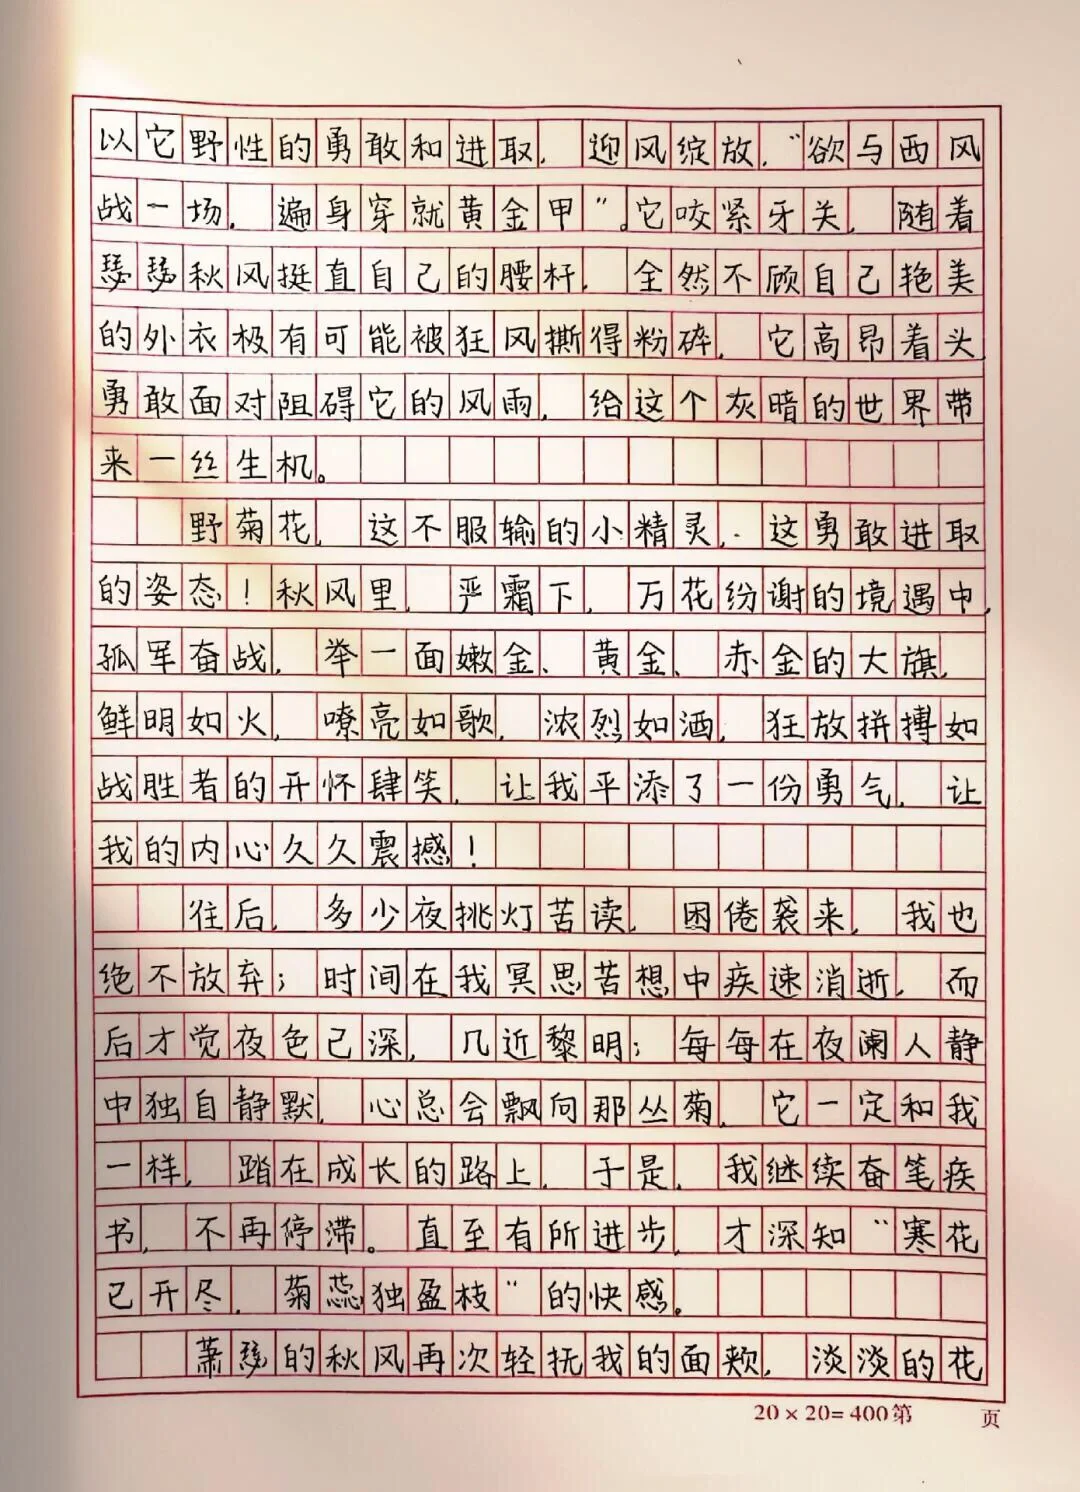 以它野性的勇敢和进取，迎风绽放，“欲与西风
战一场，遍身穿就黄金甲”。它咬紧牙关，随着
瑟瑟秋风挺直自己的腰杆，全然不顾自己艳美
的外衣极有可能被狂风撕得粉碎，它高昂着头，
勇敢面对阻碍它的风雨，给这个灰暗的世界带
来一丝生机。
野菊花，这不服输的小精灵，这勇敢进取
的姿态！秋风里，严霜下，万花纷谢的境遇中，
孤军奋战，举一面嫩金、黄金、赤金的大旗，
鲜明如火，嘹亮如歌，浓烈如酒，狂放拼搏如
战胜者的开怀肆笑，让我平添了一份勇气，让
我的内心久久震撼！
往后，多少夜挑灯苦读，困倦袭来，我也
绝不放弃；时间在我冥思苦想中疾速消逝，而
后才觉夜色已深，几近黎明；每每在夜阑人静
中独自静默，心总会飘向那丛菊，它一定和我
一样，踏在成长的路上，于是，我继续奋笔疾
书，不再停滞。直至有所进步，才深知“寒花
已开尽，菊蕊独盈枝”的快感。
萧瑟的秋风再次轻抚我的面颊，淡淡的花
20×20=400第 页